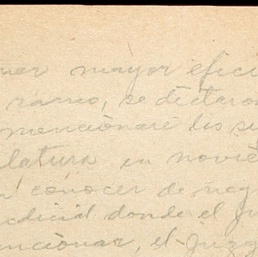 mayor efici
ramo, se dictaron
mencionaré los si
latura en novie
conocer de neg
dicial donde el ju
encionar, el Juzg